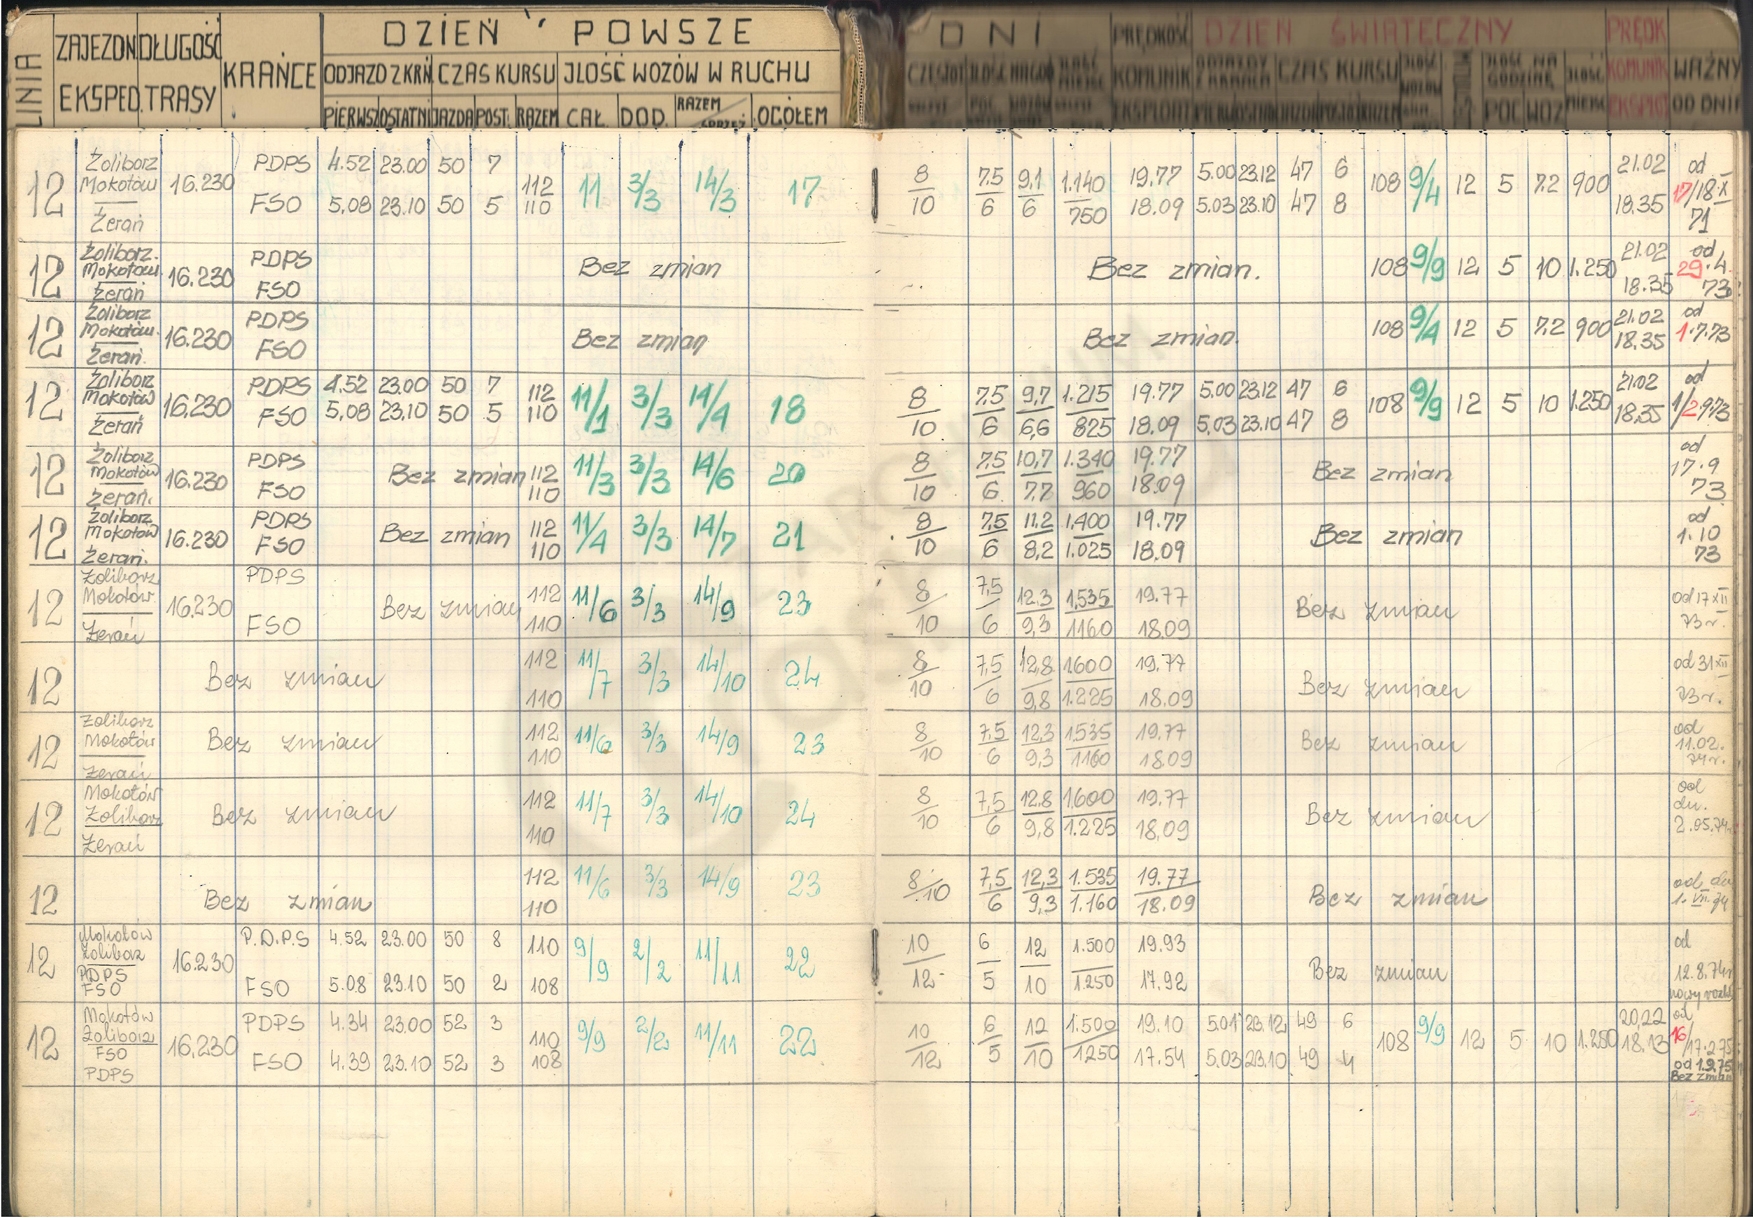 LINIA ZAJEZDN. EKSPED. DŁUGOŚĆ TRASY KRAŃCE DZIEŃ POWSZE DNI PRĘDKOŚĆ DZIEŃ ŚWIĄTECZNY PRĘDK WAŻNY
ODJAZD Z KRŃ CZAS KURSU JLOŚĆ WOZÓW W RUCHU KOMUNIK CZAS KURSU KOMUNIK OD DNIA
PIERWSZ OSTATNI JAZDA POST. RAZEM CAŁ. DOD. RAZEM OGÓŁEM EKSPLOAT POC WOZ
12 Żoliborz Mokotów Żerań 16.230 PDPS 4.52 23.00 50 7 112 11 3/3 14/3 17 8 7,5 9,1 1.140 19.77 5.00 23.12 47 6 108 9/4 12 5 7.2 900 21.02 od 17/18.X
FSO 5.08 23.10 50 5 110 10 6 6 750 18.09 5.03 23.10 47 8 18.35 71
12 Żoliborz. Mokotów Żerań 16.230 PDPS FSO Bez zmian Bez zmian. 108 9/9 12 5 10 1.250 21.02 18.35 od 29.4. 73
12 Żoliborz Mokotów. Żerań. 16.230 PDPS FSO Bez zmian Bez zmian. 108 9/4 12 5 7.2 900 21.02 18.35 od 1.7.73
12 Żoliborz Mokotów Żerań 16.230 PDPS 4.52 23.00 50 7 112 11/1 3/3 14/4 18 8 7,5 9,7 1.215 19.77 5.00 23.12 47 6 108 9/9 12 5 10 1.250 21.02 od 1/2.9.73
FSO 5.08 23.10 50 5 110 10 6 6,6 825 18.09 5.03 23.10 47 8 18.35
12 Żoliborz Mokotów Żerań. 16.230 PDPS FSO Bez zmian 112 110 11/3 3/3 14/6 20 8/10 7,5/6 10,7/7,7 1.340/960 19.77 18.09 Bez zmian od 17.9 73
12 Żoliborz Mokotów Żerań. 16.230 PDPS FSO Bez zmian 112 110 11/4 3/3 14/7 21 8/10 7,5/6 11,2/8,2 1.400/1.025 19.77 18.09 Bez zmian od 1.10 73
12 Żoliborz Mokotów. Żerań 16.230 PDPS FSO Bez zmian 112 110 11/6 3/3 14/9 23 8/10 7,5/6 12,3/9,3 1.535/1160 19.77 18.09 Bez zmian od 17 XII 73 r.
12 Bez zmian 112 110 11/7 3/3 14/10 24 8/10 7,5/6 12,8/9,8 1600/1.225 19.77 18.09 Bez zmian od 31 XII 73 r.
12 Żoliborz Mokotów Żerań Bez zmian 112 110 11/6 3/3 14/9 23 8/10 7,5/6 12,3/9,3 1535/1160 19.77 18.09 Bez zmian od 11.02. 74 r.
12 Mokotów Żoliborz Żerań Bez zmian 112 110 11/7 3/3 14/10 24 8/10 7,5/6 12,8/9,8 1.600/1.225 19.77 18,09 Bez zmian od dn. 2.05.74
12 Bez zmian 112 110 11/6 3/3 14/9 23 8/10 7,5/6 12,3/9,3 1.535/1.160 19.77/18.09 Bez zmian od dn 1.VII.74
12 Mokotów Żoliborz PDPS FSO 16.230 P.D.P.S 4.52 23.00 50 8 110 9/9 2/2 11/11 22 10 6 12 1.500 19.93 Bez zmian od
FSO 5.08 23.10 50 2 108 12 5 10 1.250 17.92 12.8.74 nowy rozkł
12 Mokotów Żoliborz FSO PDPS 16.230 PDPS 4.34 23.00 52 3 110 9/9 2/2 11/11 22 10 6 12 1.500 19.10 5.01 23.12 49 6 108 9/9 12 5 10 1.250 20,22 od 16/17.2.75
FSO 4.39 23.10 52 3 108 12 5 10 1250 17.54 5.03 23.10 49 4 18.13 od 1.9.75 Bez zmian